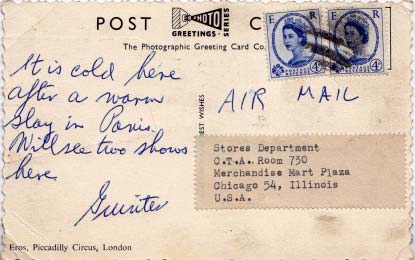 POST C
PHOTO
GREETINGS SERIES
The Photographic Greeting Card Co.
E R E R
POSTAGE REVENUE
4D 4D
It is cold here
after a warm
stay in Paris.
Will see two shows
here.
AIR MAIL
EST WISHES
Stores Department
C.T.A. Room 730
Merchandise Mart Plaza
Chicago 54, Illinois
U.S.A.
Eros, Piccadilly Circus, London